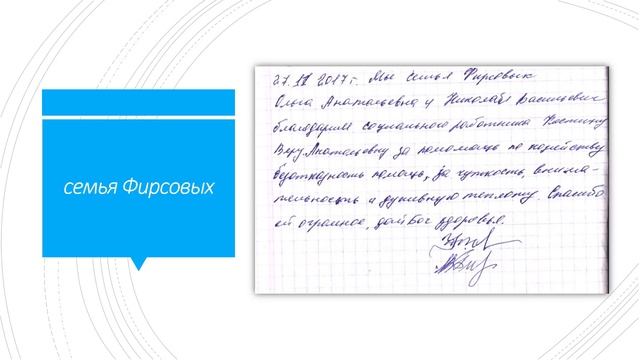 семья Фирсовых
27.11 2017 г. Мы семья Фирсовых
Ольга Анатольевна и Николай Васильевич
благодарим социального работника
Веру Анатольевну за помощь по хозяйству
безотказность помощь, за чуткость, внима-
тельность и душевную теплоту. Спасибо
ей огромное, дай Бог здоровья.